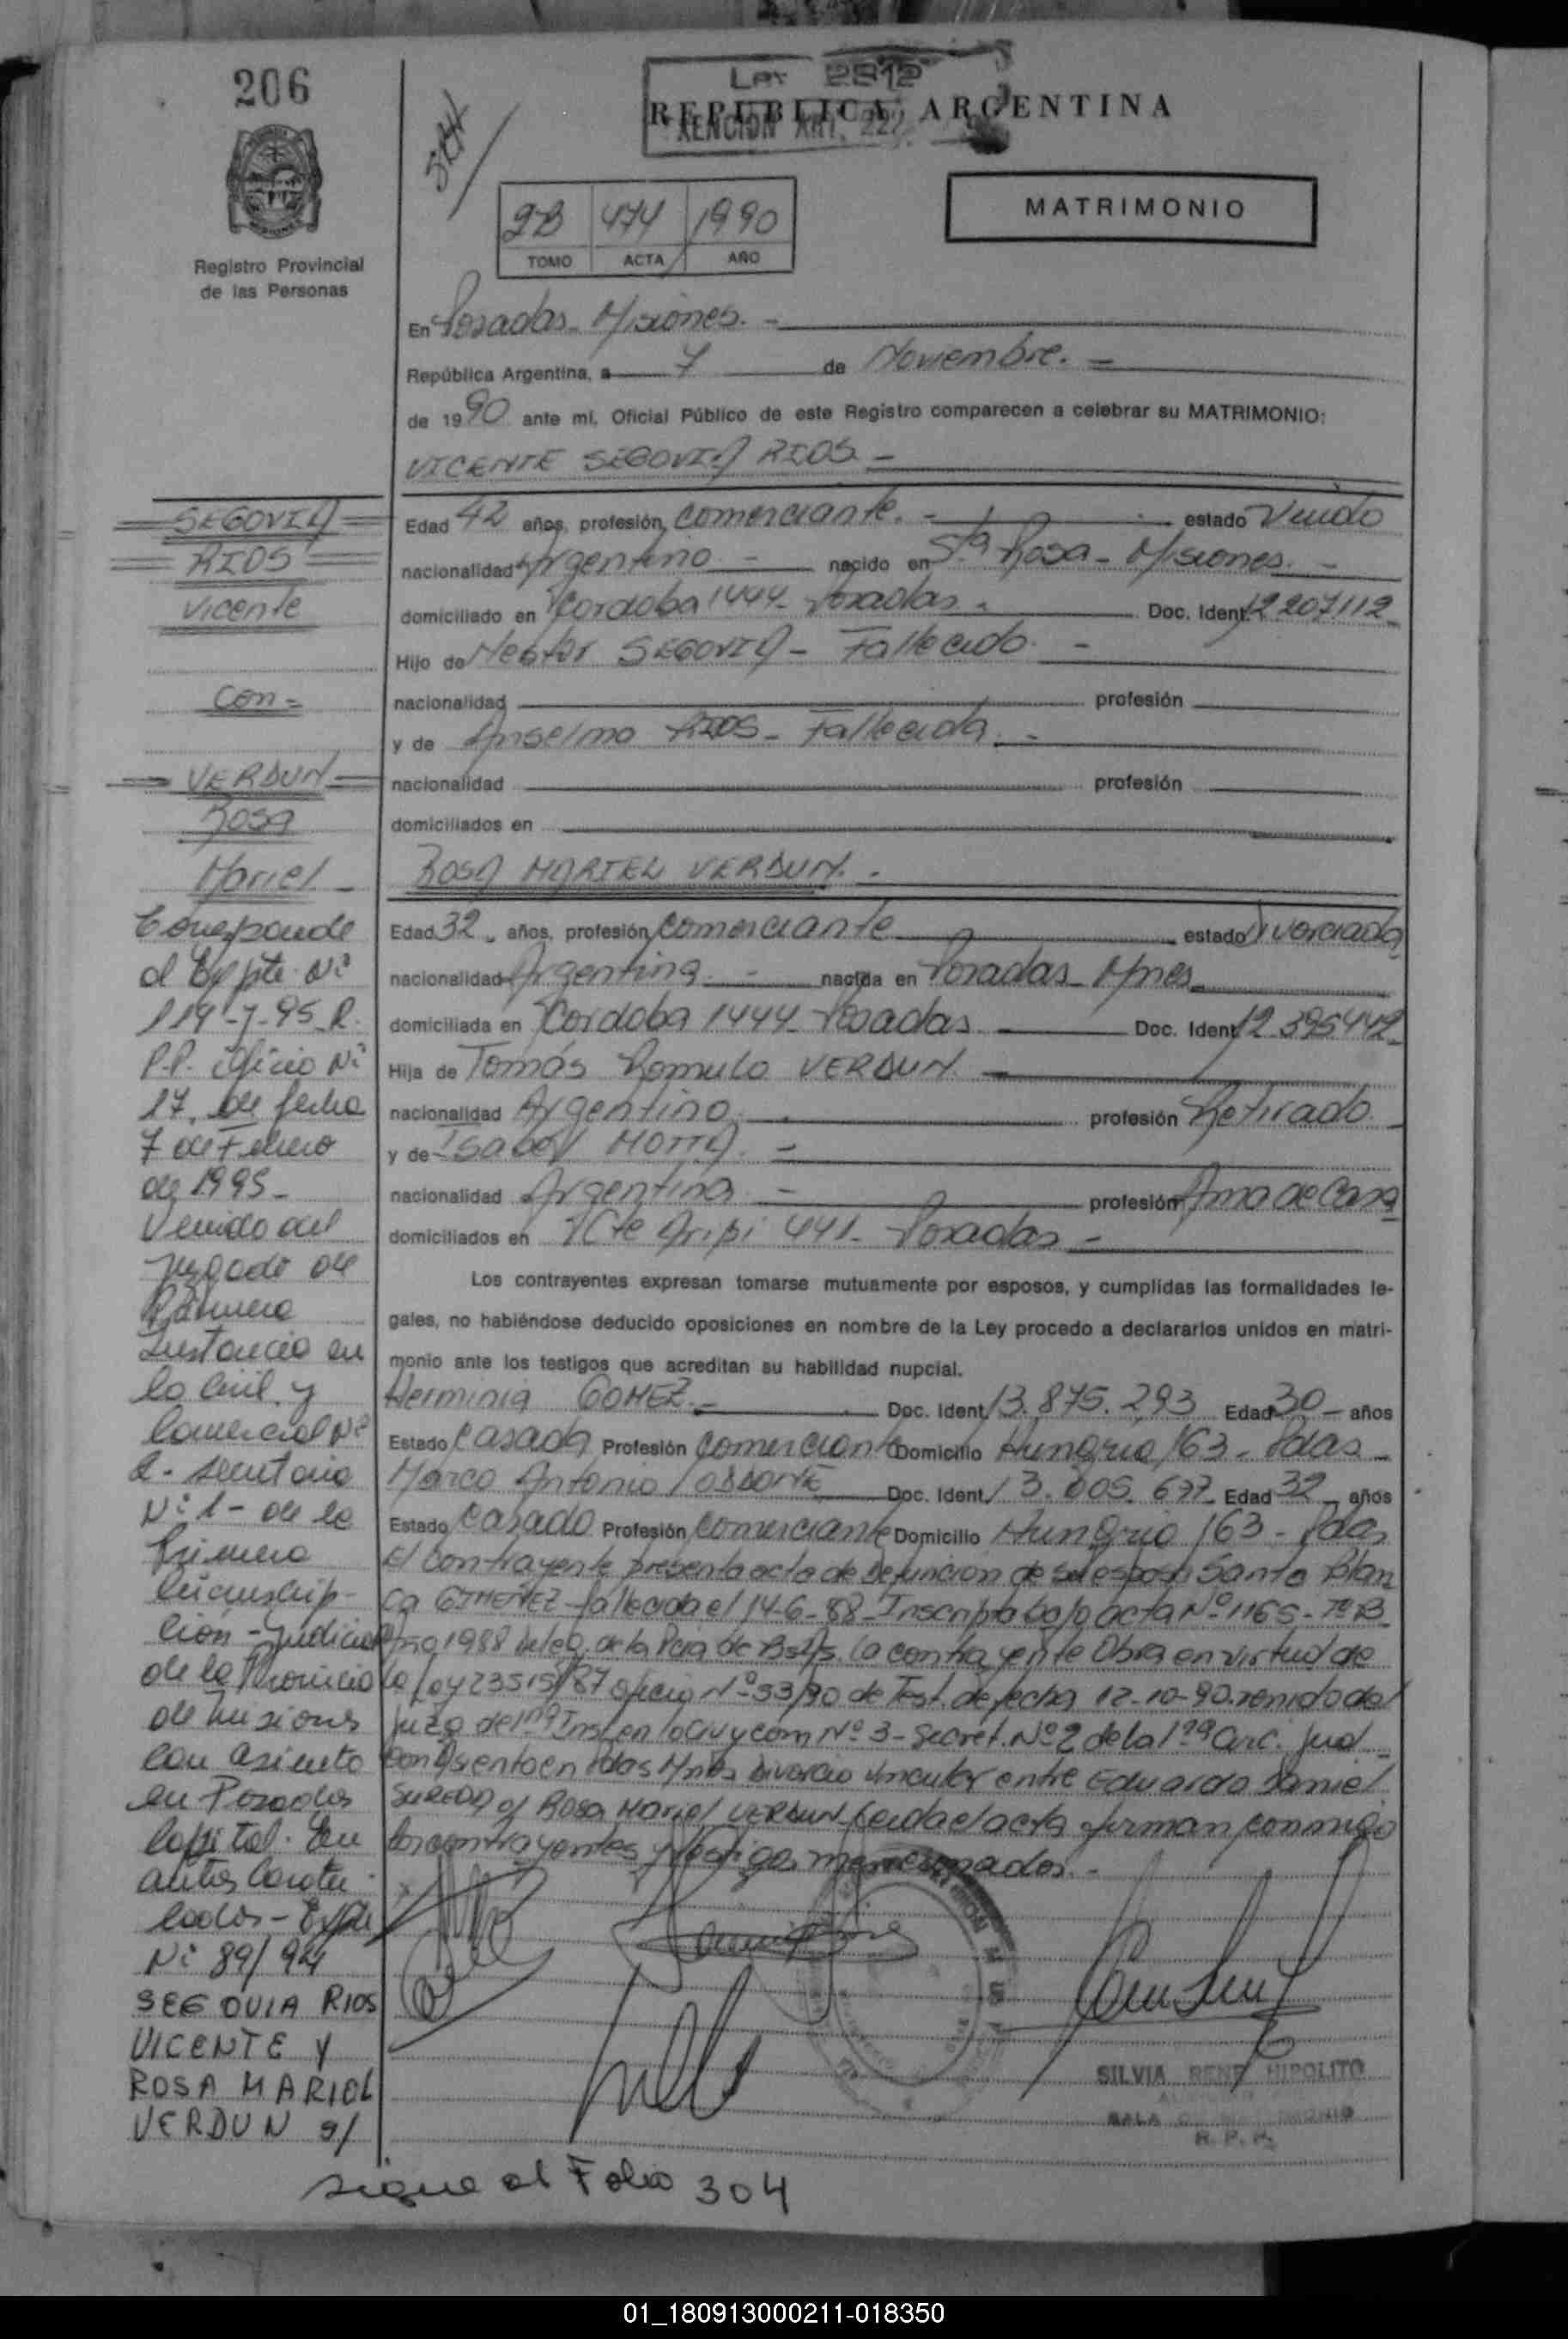 206
Ley 2812
REPUBLICA ARGENTINA
XENCION ART. 22
MATRIMONIO
2B 474 1990
TOMO ACTA AÑO
Registro Provincial
de las Personas
En Posadas - Misiones. -
República Argentina, a 7 de Noviembre. -
de 1990 ante mí, Oficial Público de este Registro comparecen a celebrar su MATRIMONIO:
VICENTE SEGOVIA RIOS. -
Edad 42 años, profesión, comerciante. - estado Viudo
nacionalidad Argentino - nacido en Sta Rosa - Misiones. -
domiciliado en Cordoba 1444 - Posadas - Doc. Ident. 12.207.112
Hijo de Nestor SEGOVIA - Fallecido. -
nacionalidad profesión
y de Anselmo RIOS - Fallecida. -
nacionalidad profesión
domiciliados en
ROSA MARIEL VERDUN. -
Edad 32 - años, profesión, comerciante estado Divorciada
nacionalidad Argentina. - nacida en Posadas - Mnes
domiciliada en Cordoba 1444 - Posadas Doc. Ident. 12.395.442
Hija de Tomás Romulo VERDUN.
nacionalidad Argentino. profesión Retirado
y de Isabel MOTTA. -
nacionalidad Argentina - profesión Ama de Casa
domiciliados en 441 - Posadas -
Los contrayentes expresan tomarse mutuamente por esposos, y cumplidas las formalidades le-
gales, no habiéndose deducido oposiciones en nombre de la Ley procedo a declararlos unidos en matri-
monio ante los testigos que acreditan su habilidad nupcial.
Herminia GOMEZ. - Doc. Ident. 13.875.293 Edad 30 - años
Estado Casada Profesión comerciante Domicilio Hungria 163 - Pdas -
Marco Antonio Doc. Ident. 13.005.677 Edad 32 - años
Estado Casado Profesión comerciante Domicilio Hungria 163 - Pdas
El contrayente presenta acta de Defunción de su esposa Santa Blan
ca GIMENEZ fallecida el 14-6-88 - Inscripta bajo acta Nº 1165 - Tº B
Año 1988 de la Pcia de Bs As. La contrayente Obra en virtud de
la Ley 23515/87 oficio Nº 33/90 de fecha 12-10-90 venido del
Juzg de 1ra Inst en lo Civ y com Nº 3 - Secret. Nº 2 de la 1ra Circ. Jud -
con Asiento en Pdas Mnes Divorcio vincular entre Eduardo Daniel
y Rosa Mariel VERDUN. Leida el acta firman conmigo
los contrayentes y testigos mencionados. -
SILVIA RENE HIPOLITO
SALA
R. P. P.
SEGOVIA
RIOS
Vicente
con =
VERDUN
Rosa
Mariel -
Corresponde
al Expte Nº
119-7-95 R.
P.P. Oficio Nº
17, de fecha
7 de Febrero
de 1995 -
Venido del
Juzgado de
Primera
Instancia en
lo Civil y
Comercial Nº
2 - secretaria
Nº 1 - de la
Primera
Circunscrip-
ción - Judicial
de la Provincia
de Misiones
con asiento
en Posadas
Capital. En
autos caratu-
lados - Expte
Nº 89/94
SEGOVIA RIOS
VICENTE Y
ROSA MARIEL
VERDUN s/
sigue al Folio 304
01_180913000211-018350